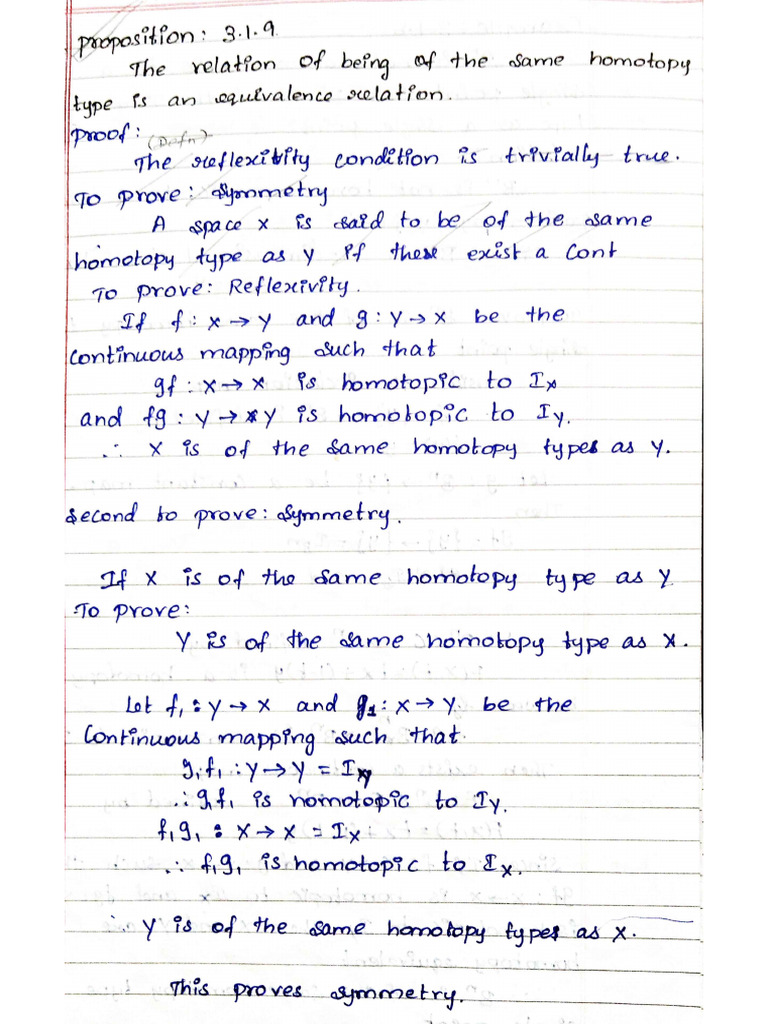 Proposition: 3.1.9
The relation of being of the same homotopy
type is an equivalence relation.
Proof: (Defn)
The reflexitvity condition is trivially true.
To prove: Symmetry
A space X is said to be of the same
homotopy type as Y if there exist a cont
To prove: Reflexivity.
If f : X → Y and g : Y → X be the
continuous mapping such that
gf : X → X is homotopic to Ix
and fg : Y → Y is homotopic to Iy.
∴ X is of the same homotopy types as Y.
Second to prove: Symmetry.
If X is of the same homotopy type as Y
To prove:
Y is of the same homotopy type as X.
Let f₁ : Y → X and g₁ : X → Y be the
Continuous mapping such that
g₁f₁ : Y → Y = Iy
∴ g₁f₁ is homotopic to Iy.
f₁g₁ : X → X = Ix
∴ f₁g₁ is homotopic to Ix.
∴ Y is of the same homotopy types as X.
This proves symmetry.